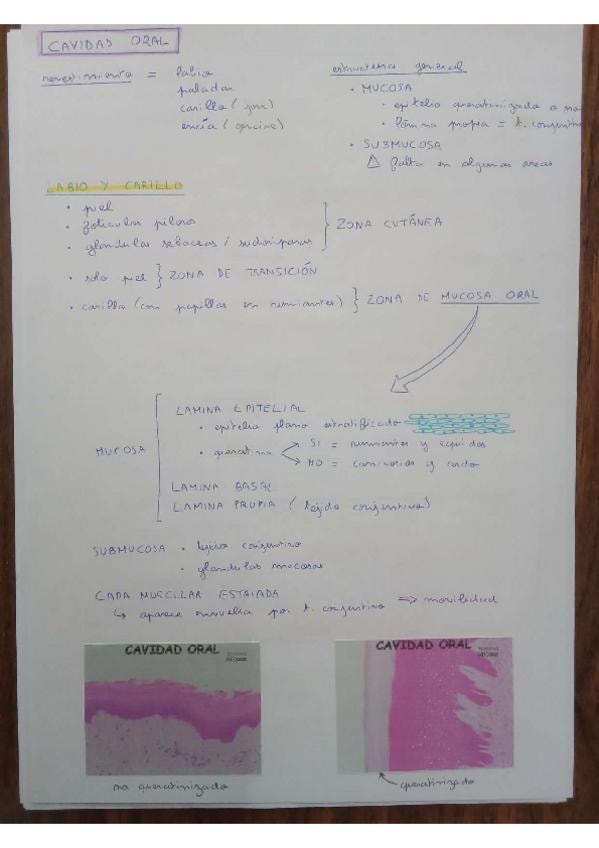 CAVIDAD ORAL
revestimiento = labio
paladar
carillo (
encía (
estructura general
• MUCOSA
• epitelio queratinizado o no
• lámina propia = t. conjentivo
• SUBMUCOSA
⚠ falta en algunas areas
LABIO Y CARILLO
• piel
• foliculos pilosos
• glandulas sebaceas / sudoriparas
} ZONA CUTÁNEA
• solo piel } ZONA DE TRANSICIÓN
• carillo (con papillas en rumiantes) } ZONA DE MUCOSA ORAL
MUCOSA
LAMINA EPITELIAL
• epitelio plano estratificado
• queratina
SI = rumiantes y equidos
NO = carnivoros y cerdo
LAMINA BASAL
LAMINA PROPIA (tejido conjentivo)
SUBMUCOSA • tejido conjentivo
• glandulas mucosas
CAPA MUSCULAR ESTRIADA
↳ aparece envuelta por t. conjentivo => movilidad
CAVIDAD ORAL
CAVIDAD ORAL
no queratinizado
queratinizado